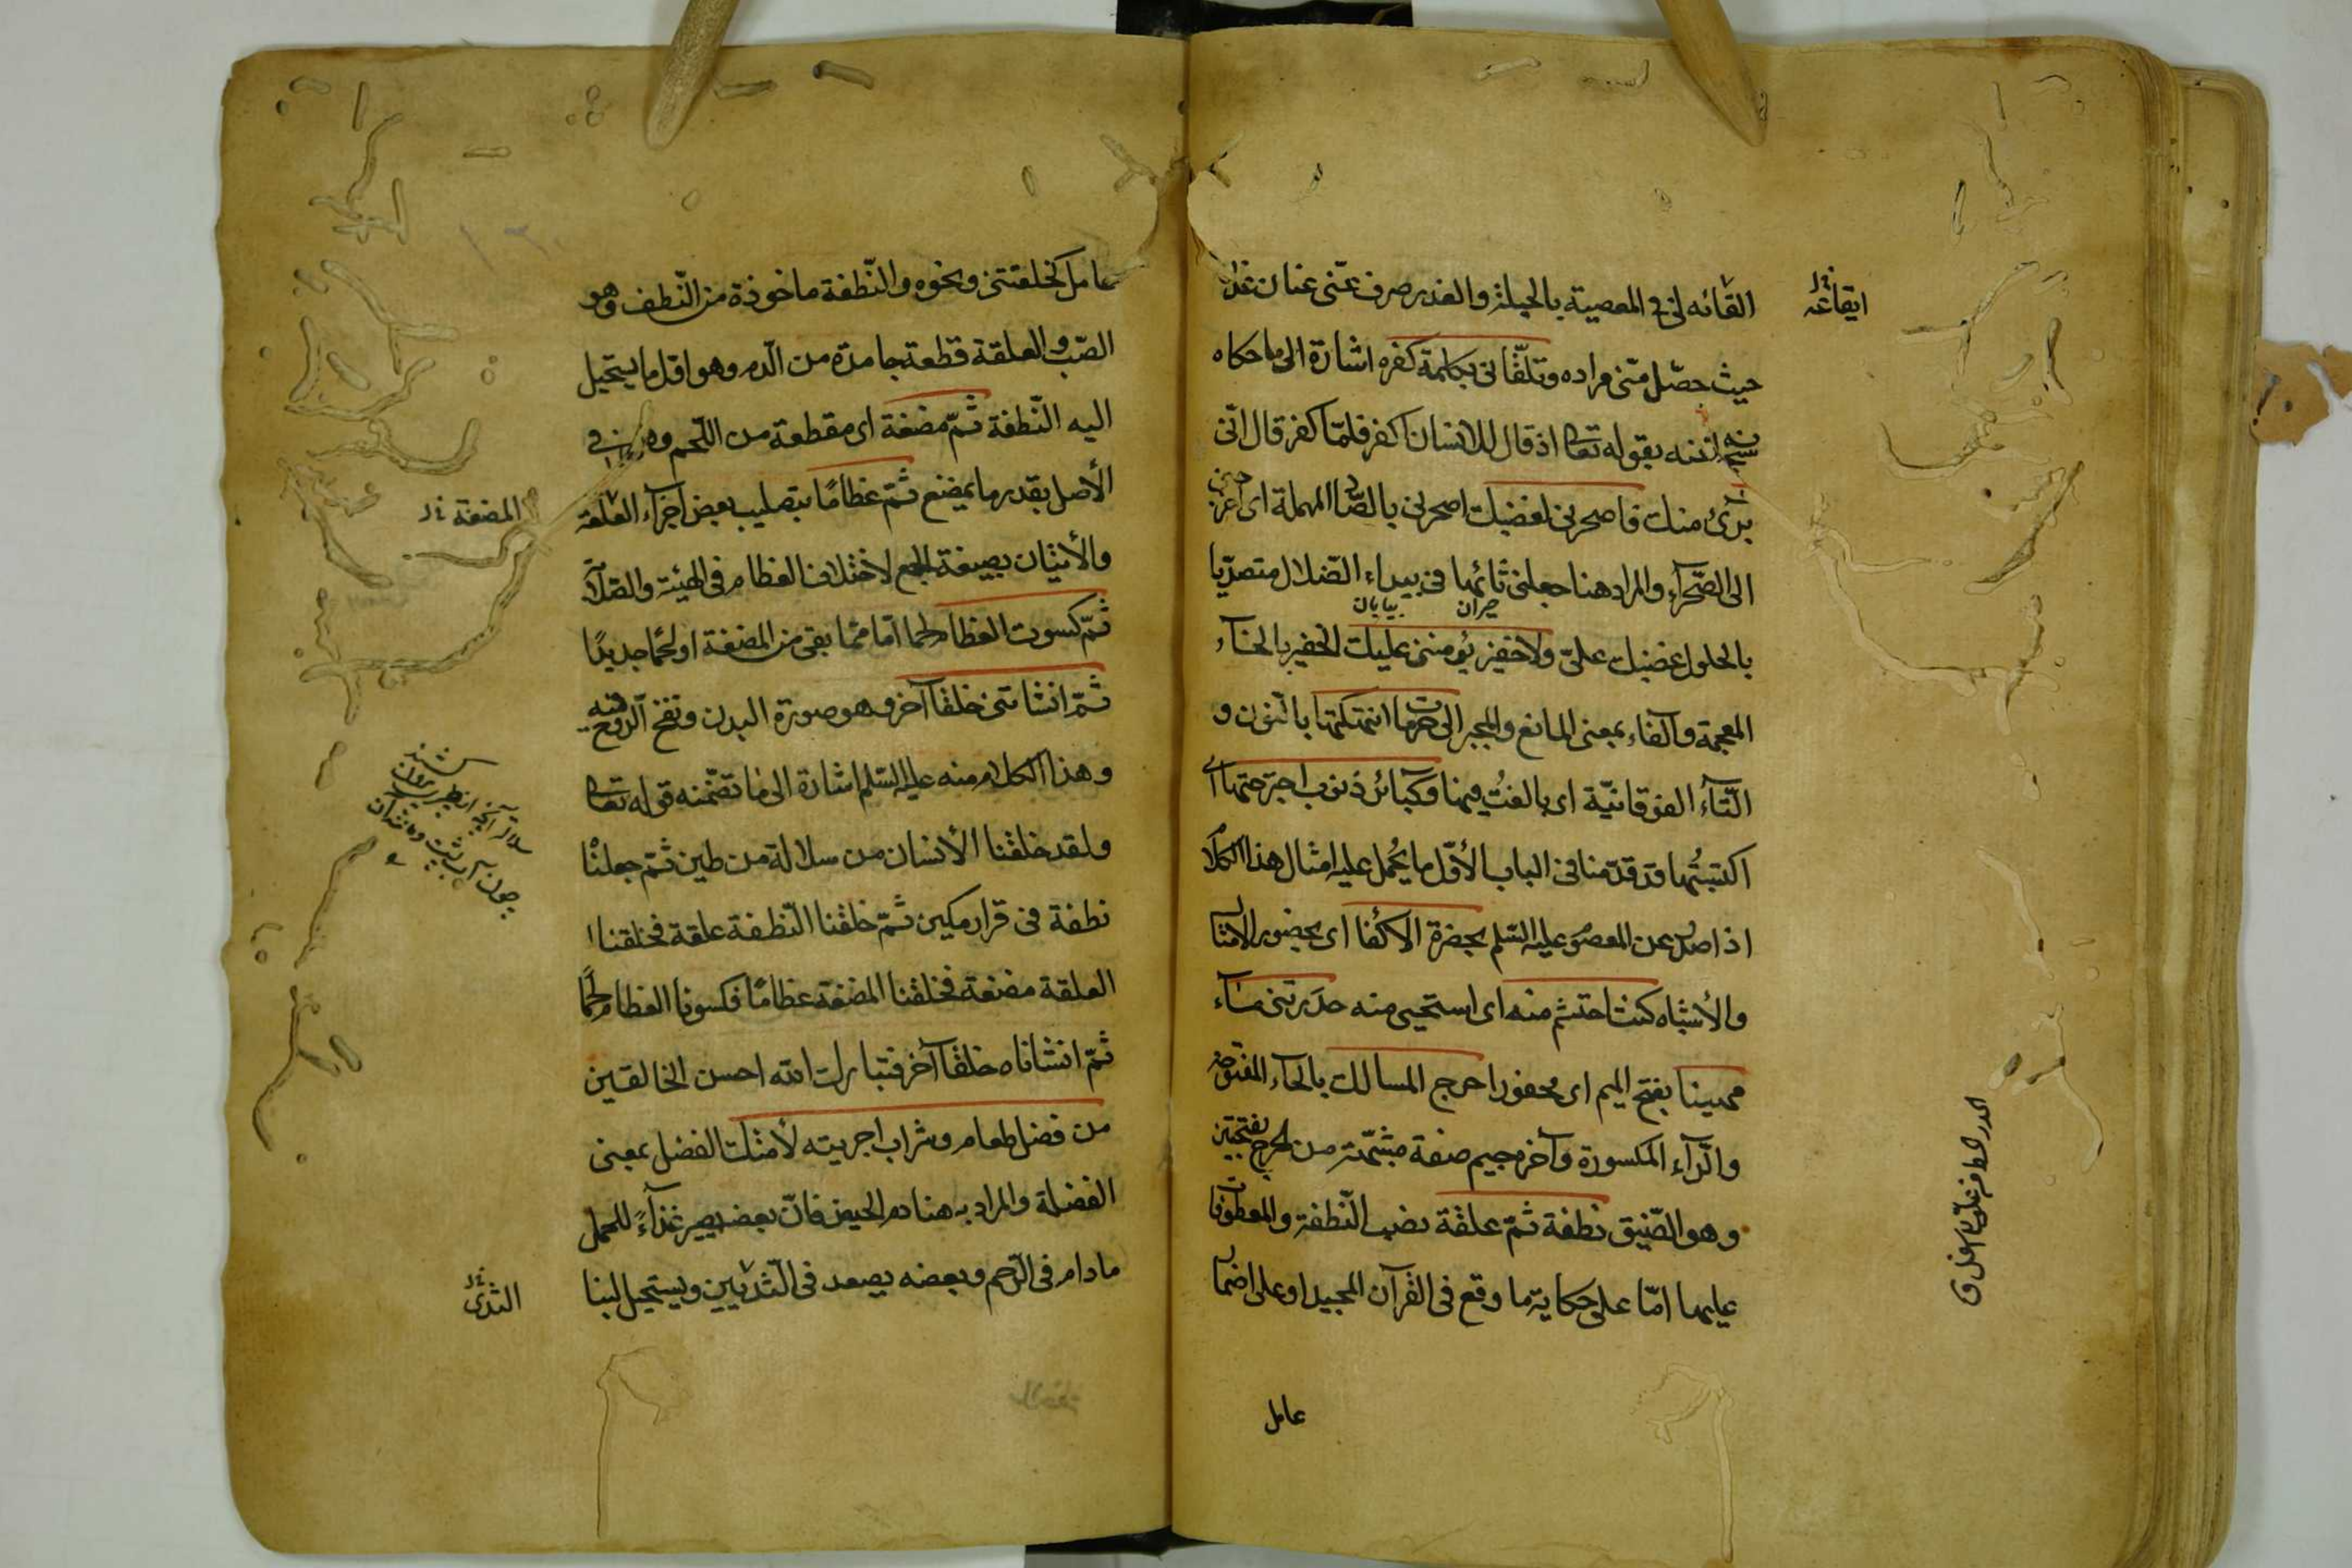 القائه لى فى المعصية بالحيلة والغدر صرف عنّى عنان غدره
حيث حصّل منّى مراده وتلقّانى بكلمة كفره اشارة الى ما حكاه
سبحانه بقوله تعا اذ قال للانسان اكفر فلمّا كفر قال انّى
برىٔ منك فاصحرنى لغضبك اصحرنى بالصّاد المهملة اى
الى الصّحرآء والمراد هنا جعلنى تائها فى بيداء الضّلال متصدّيا
حيران بيابان
بالحلول غضبك علىّ ولا خفير يؤمننى عليك الخفير بالخآء
المعجمة والفاء بمعنى المانع والمجير الى حرمات انتهكتها بالنّون و
التّآء الفوقانيّة اى بالغتُ فيها وكبائر ذنوب اجترحتها اى
اكتبتُها قد قدّمنا فى الباب الأوّل ما يُحمل عليه امثال هذا الكلام
اذا صدر عن المعصوم عليه السّلم بحضرة الاكفا اى بحضور الامثال
والأشباه كنت احتشم منه اى استحيى منه حدرتنى مآء
مهينا بفتح الميم اى محقورا حرج المسالك بالحآء المفتوحة
والرّآء المكسورة وآخره جيم صفة مشبّهة من الحرج بفتحتين
وهو الضّيق نطفة ثمّ علقة نصب النّطفة والمعطوفات
عليها امّا على حكاية ما وقع فى القرآن المجيد او على اضمار
عامل
ايقاعه
عامل كخلقتنى ونحوه والنّطفة ماخوذة من النّطف وهو
الصّب والعلقة قطعة جامدة من الدّم وهو اوّل ما يستحيل
اليه النّطفة ثمّ مضغة اى مقطعة من اللّحم وهى فى
الأصل بقدر ما يمضغ ثمّ عظامًا بتصليب بعض اجزآء العلقة
والأتيان بصيغة الجمع لاختلاف العظام فى الهيئة والصّلابة
ثمّ كسوت العظام لحما امّا ممّا بقى من المضغة او لحما جديدًا
ثمّ انشاتنى خلقا آخر وهو صورة البدن ونفخ الرّوح فيه
وهذا الكلام منه عليه السّلم اشارة الى ما تضمّنه قوله تعا
ولقد خلقنا الأنسان من سلالة من طين ثمّ جعلناه
نطفة فى قرار مكين ثمّ خلقنا النّطفة علقة فخلقنا ا
العلقة مضغة فخلقنا المضغة عظامًا فكسونا العظام لحمًا
ثمّ انشاناه خلقا آخر فتبارك الله احسن الخالقين
من فضل طعام وشراب اجريته لأمتك الفضل بمعنى
الفضلة والمراد به هنا دم الحيض فانّ بعضه يصير غذآءً للحمل
ما دام فى الرّحم وبعضه يصعد فى الثّديين ويستحيل لبنا
المضغة
الثدى